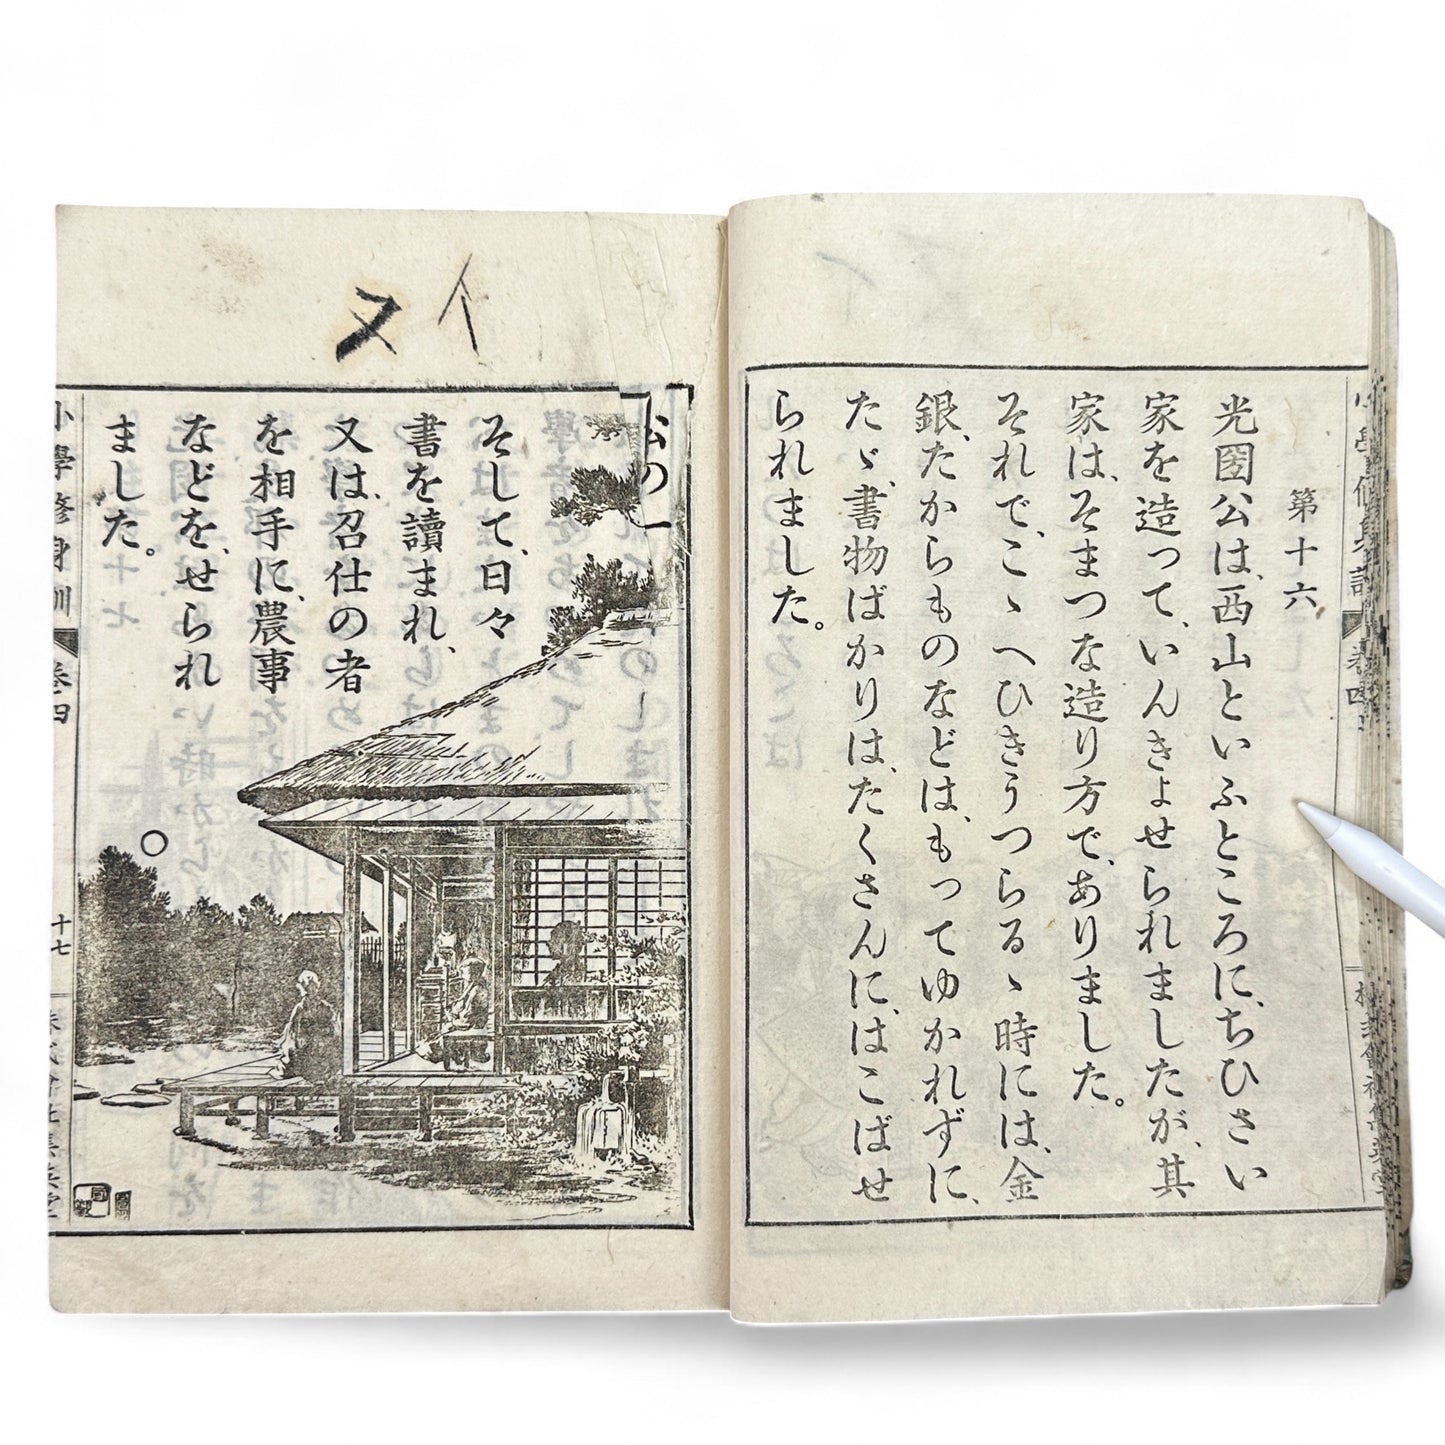 第十六
光圀公は、西山といふところに、ちひさい
家を造って、いんきょせられましたが、其
家は、そまつな造り方で、ありました。
それで、こゝへひきうつらるゝ時には、金
銀、たからものなどは、もってゆかれずに、
たゞ、書物ばかりは、たくさんに、はこばせ
られました。
そして、日々
書を讀まれ、
又は、召仕の者
を相手に、農事
などを、せられ
ました。
小學修身訓
巻四
十七
イ
ヌ